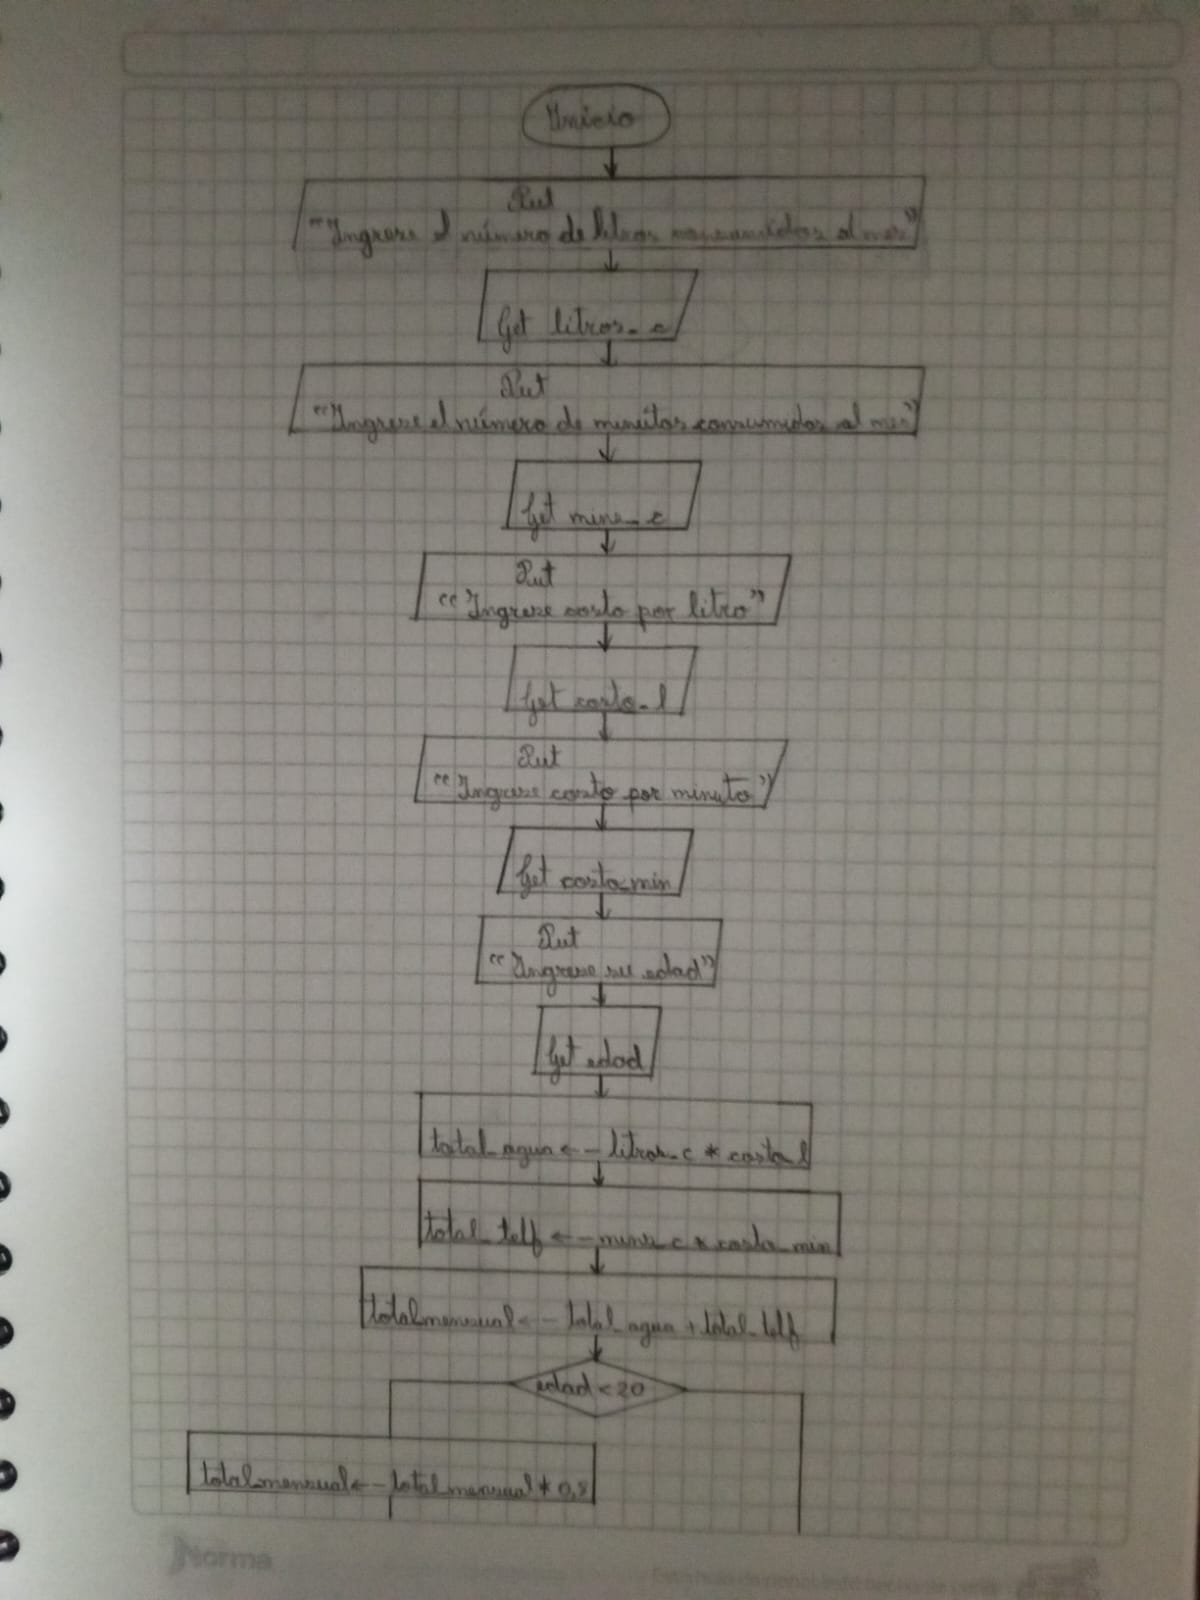 Inicio
Put
"Ingrese el número de litros consumidos al mes"
Get litros_c
Put
"Ingrese el número de minutos consumidos al mes"
Get mins_c
Put
"Ingrese costo por litro"
Get costo_l
Put
"Ingrese costo por minuto"
Get costo_min
Put
"Ingrese su edad"
Get edad
total_agua <-- litros_c * costo_l
total_telf <-- mins_c * costo_min
total_mensual <-- total_agua + total_telf
edad < 20
total_mensual <-- total_mensual * 0,8
Norma